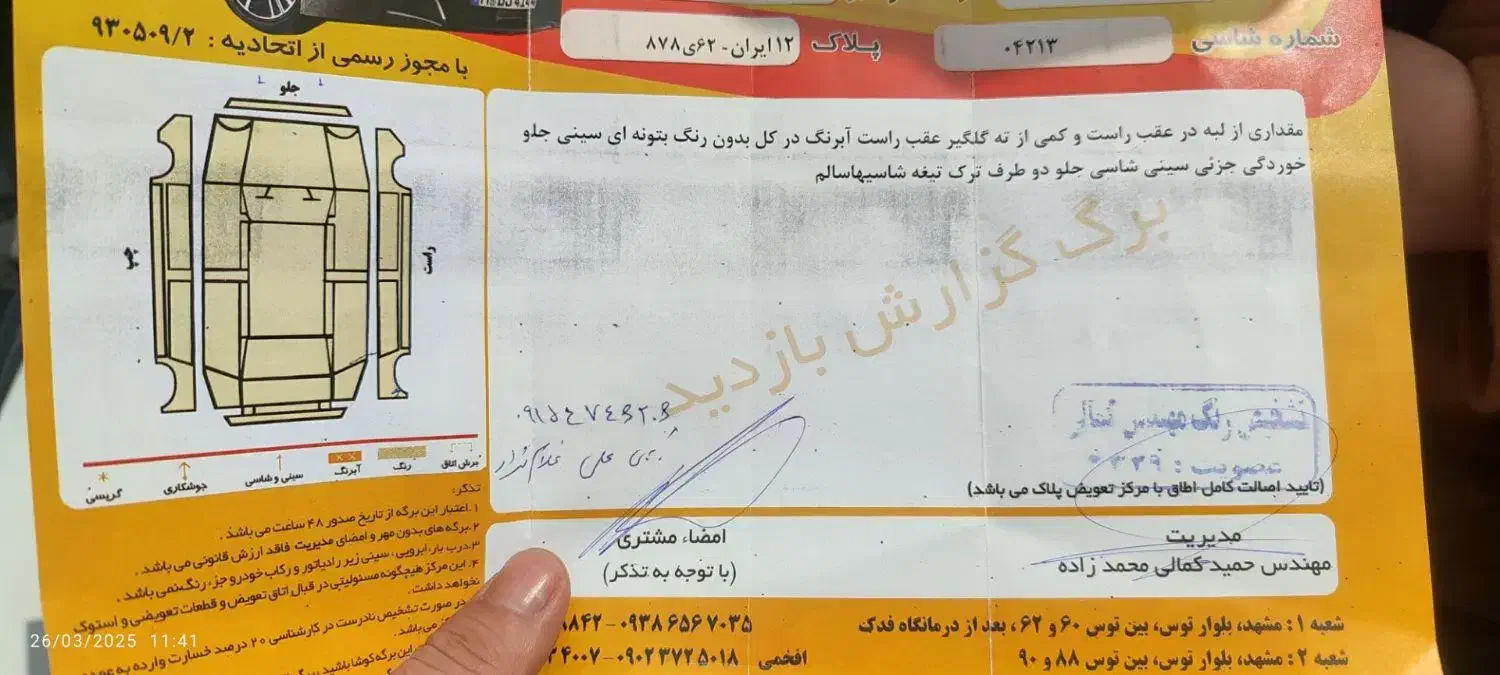 شماره شاسی
۰۴۲۱۳
پلاک
۱۲ ایران - ۶۲ی۸۷۸
با مجوز رسمی از اتحادیه : ۹۳۰۵۰۹/۲
جلو
چپ
راست
مقداری از لبه در عقب راست و کمی از ته گلگیر عقب راست آبرنگ در کل بدون رنگ بتونه ای سینی جلو
خوردگی جزئی سینی شاسی جلو دو طرف ترک تیغه شاسیهاسالم
برگ گزارش بازدید
برش اتاق
رنگ
آبرنگ
سینی و شاسی
جوشکاری
گریسی
تشخیص رنگ مهندس
عضویت : ۹۳۳۹
(تایید اصالت کامل اطاق با مرکز تعویض پلاک می باشد)
مدیریت
مهندس حمید کمالی محمد زاده
امضاء مشتری
(با توجه به تذکر)
تذکر:
۱.اعتبار این برگه از تاریخ صدور ۴۸ ساعت می باشد .
۲.برگه های بدون مهر و امضای مدیریت فاقد ارزش قانونی می باشد .
۳.درب بار، ابرویی، سینی زیر رادیاتور و رکاب خودرو جزء رنگ نمی باشد .
۴. این مرکز هیچگونه مسئولیتی در قبال اتاق تعویض و قطعات تعویضی و استوک
نخواهد داشت.
در صورت تشخیص نادرست در کارشناسی ۲۰ درصد خسارت وارده به عهده
می باشد.
این برگه کوشا باشید
شعبه ۱ : مشهد، بلوار توس، بین توس ۶۰ و ۶۲ ، بعد از درمانگاه فدک
۸۴۲ - ۰۹۳۸۶۵۶۷۰۳۵
شعبه ۲ : مشهد، بلوار توس، بین توس ۸۸ و ۹۰
افخمی
۳۴۰۰۷ - ۰۹۰۲۳۷۲۵۰۱۸
26/03/2025 11:41